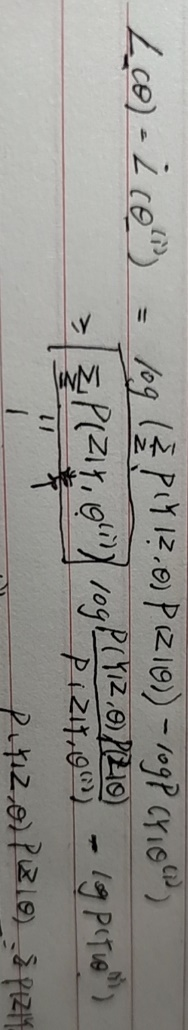 L(θ) - L(θ⁽ⁱ⁾) = log (Σ_z P(Y|Z,θ) P(Z|θ)) - log P(Y|θ⁽ⁱ⁾)
≥ Σ_z P(Z|Y,θ⁽ⁱ⁾) log P(Y|Z,θ)P(Z|θ) / P(Z|Y,θ⁽ⁱ⁾) - log P(Y|θ⁽ⁱ⁾)
1
P(Y|Z,θ) P(Z|θ)